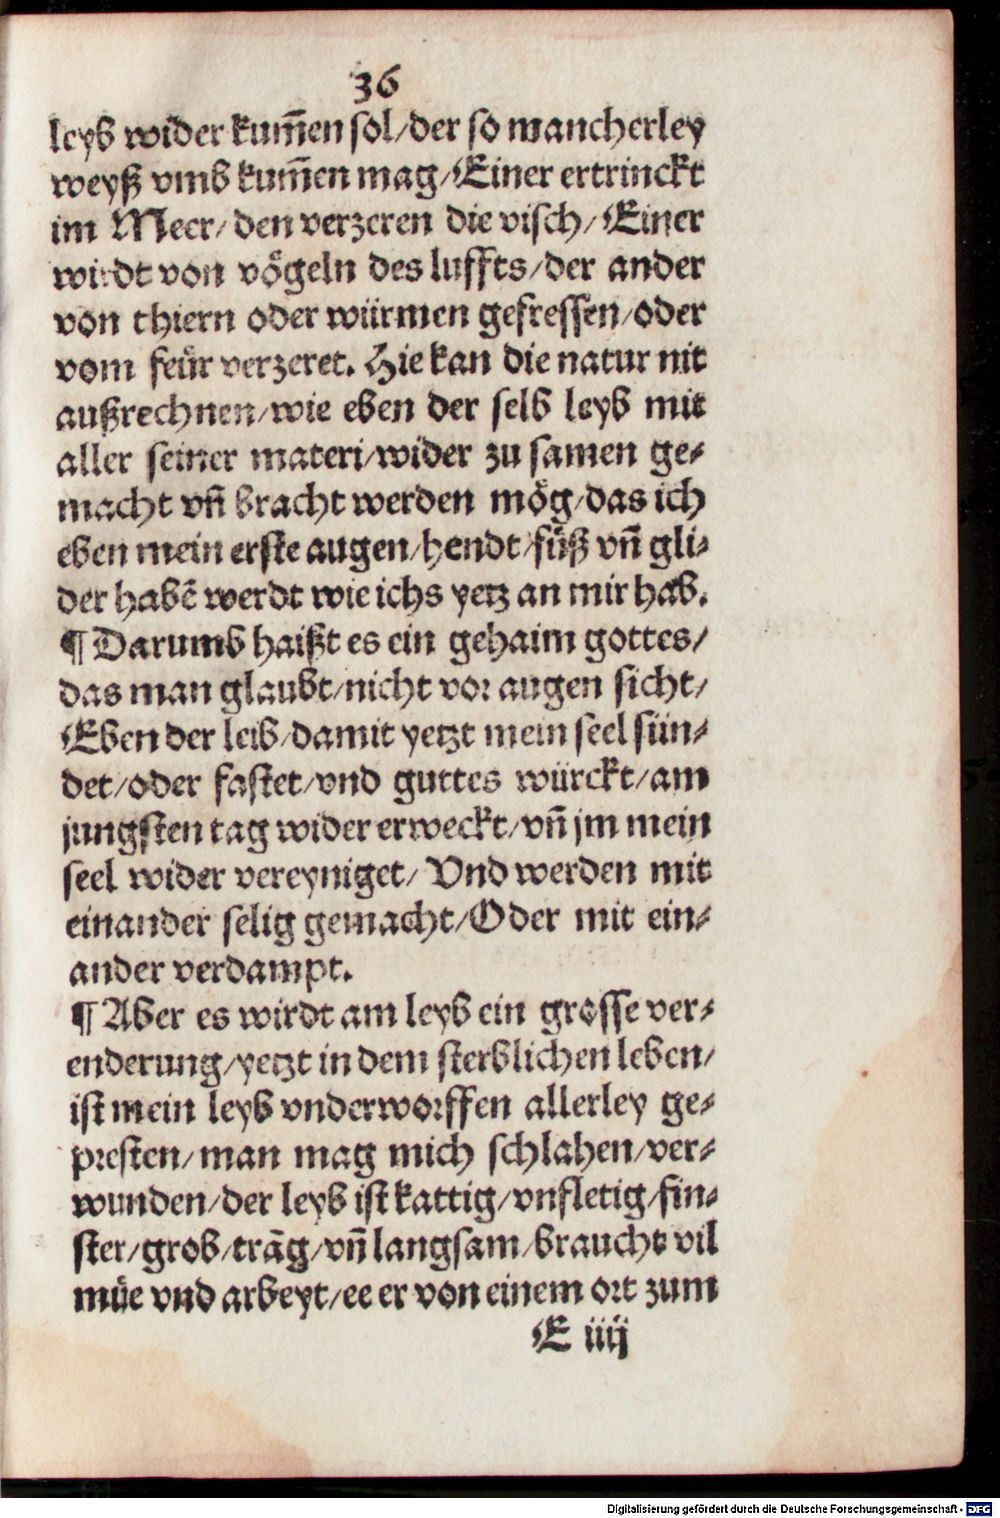 36
leyb wider kum̄en sol/der so mancherley
weyß vmb kum̄en mag/Einer ertrinckt
im Meer/den verzeren die visch/Einer
wirdt von voͤgeln des luffts/der ander
von thiern oder würmen gefressen/oder
vom feür verzeret. Hie kan die natur nit
außrechnen/wie eben der selb leyb mit
aller seiner materi/wider zu samen ge⸗
macht vn̄ bracht werden moͤg/das ich
eben mein erste augen/hendt/fuͤß vn̄ gli⸗
der habē werdt wie ichs yetz an mir hab.
¶ Darumb haißt es ein gehaim gottes/
das man glaubt/nicht vor augen sicht/
Eben der leib/damit yetzt mein seel sün⸗
det/oder fastet/vnd guttes würckt/am
jungsten tag wider erweckt/vn̄ jm mein
seel wider vereyniget/Vnd werden mit
einander selig gemacht/Oder mit ein⸗
ander verdampt.
¶ Aber es wirdt am leyb ein grosse ver⸗
enderung/yetzt in dem sterblichen leben/
ist mein leyb vnderworffen allerley ge⸗
presten/man mag mich schlahen/ver⸗
wunden/der leyb ist kattig/vnfletig/fin⸗
ster/grob/traͤg/vn̄ langsam/braucht vil
muͤe vnd arbeyt/ee er von einem ort zum
E iiij
Digitalisierung gefördert durch die Deutsche Forschungsgemeinschaft - DFG